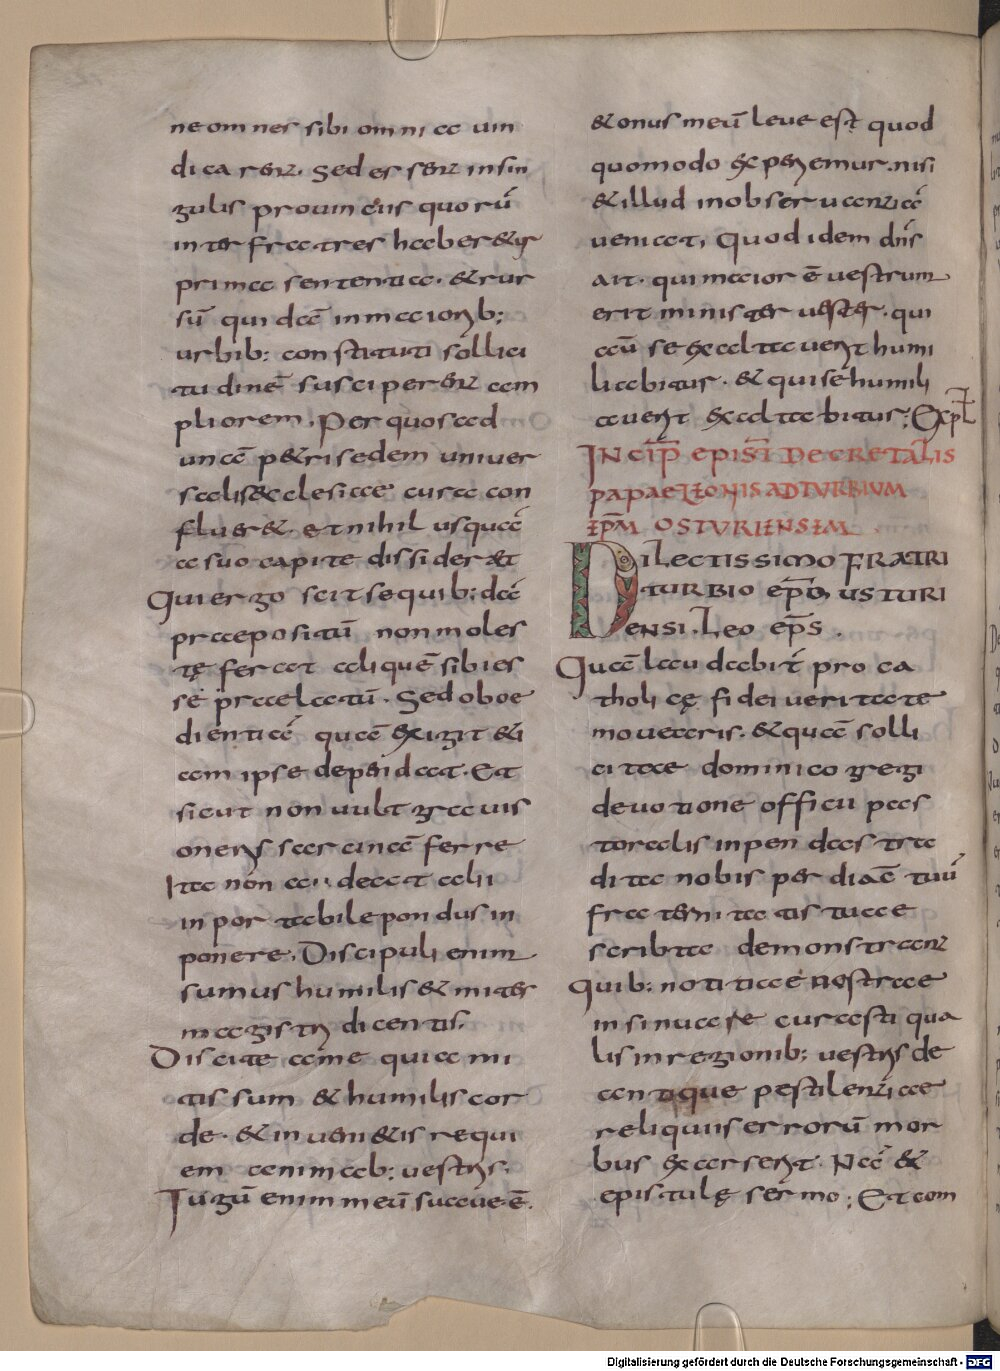 ne omnes sibi omnia uin
dicarent. Sed essent in sin
gulis prouinciis quorū
inter fratres haberetur
prima sententia. & rur
sū quidā in maiorib;
urbib; constituti sollici
tudinē susciperent am
pliorem. Per quos ad
unā petri sedem uniuer
salis ecclesiae cura con
flueret. et nihil usquā
a suo capite dissideret
Qui ergo scit se quib;dā
praepositū non moles
tę ferat aliquē sibi es
se praelatū. Sed oboe
dientiā quā exigit eti
am ipse dependat. Et
sicut non uult grauis
oneris sarcinā ferre
Ita non audeat alii
inportabile pondus in
ponere. Discipuli enim
sumus humilis & mitis
magistri dicentis.
Discite a me quia mi
tis sum & humilis cor
de. & inuenietis requi
em animab; uestris.
Iugū enim meū suaue ē.
& onus meū leue est quod
quomodo experiemur. nisi
& illud in obseruantiā
ueniat, Quod idem dn̄s
ait. qui maior ē uestrum
erit minister uester. qui
aū se exaltauerit humi
liabitur. & qui se humili
auerit exaltabitur; Expl
INCIP̄ EPISTL̄ DECRETALIS
PAPAE LEONIS AD TURBIUM
EP̄M OSTURIENSEM
DILECTISSIMO FRATRI
TURBIO EP̄O USTURI
ENSI. LEO EP̄S.
Quā laudabilit̄ pro ca
tholicę fidei ueritate
mouearis. & quā solli
citae dominico gregi
deuotione officii pas
toralis inpendas tra
dita nobis per diacē tuū
fraternitatis tuae
scripta demonstrant
Quib; notitiae nostrae
insinuare curasti qua
lis in regionib; uestris de
antique pestilentiae
reliquiis errorū mor
bus exarserit. Nā &
epistulę sermo; Et com
Digitalisierung gefördert durch die Deutsche Forschungsgemeinschaft - DFG